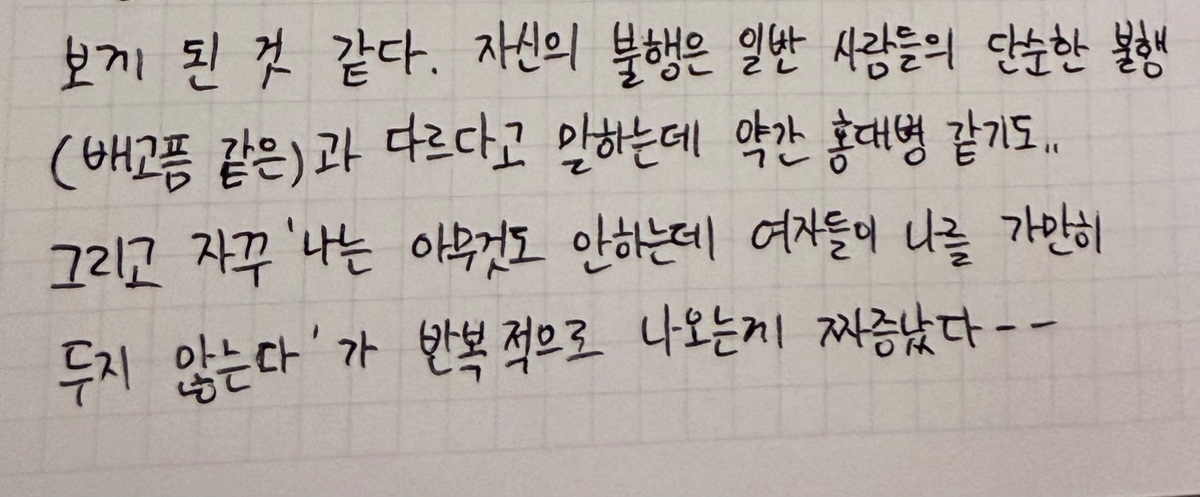 보게 된 것 같다. 자신의 불행은 일반 사람들의 단순한 불행
(배고픔 같은)과 다르다고 말하는데 약간 홍대병 같기도..
그리고 자꾸 '나는 아무것도 안하는데 여자들이 나를 가만히
두지 않는다'가 반복적으로 나오는게 짜증났다--